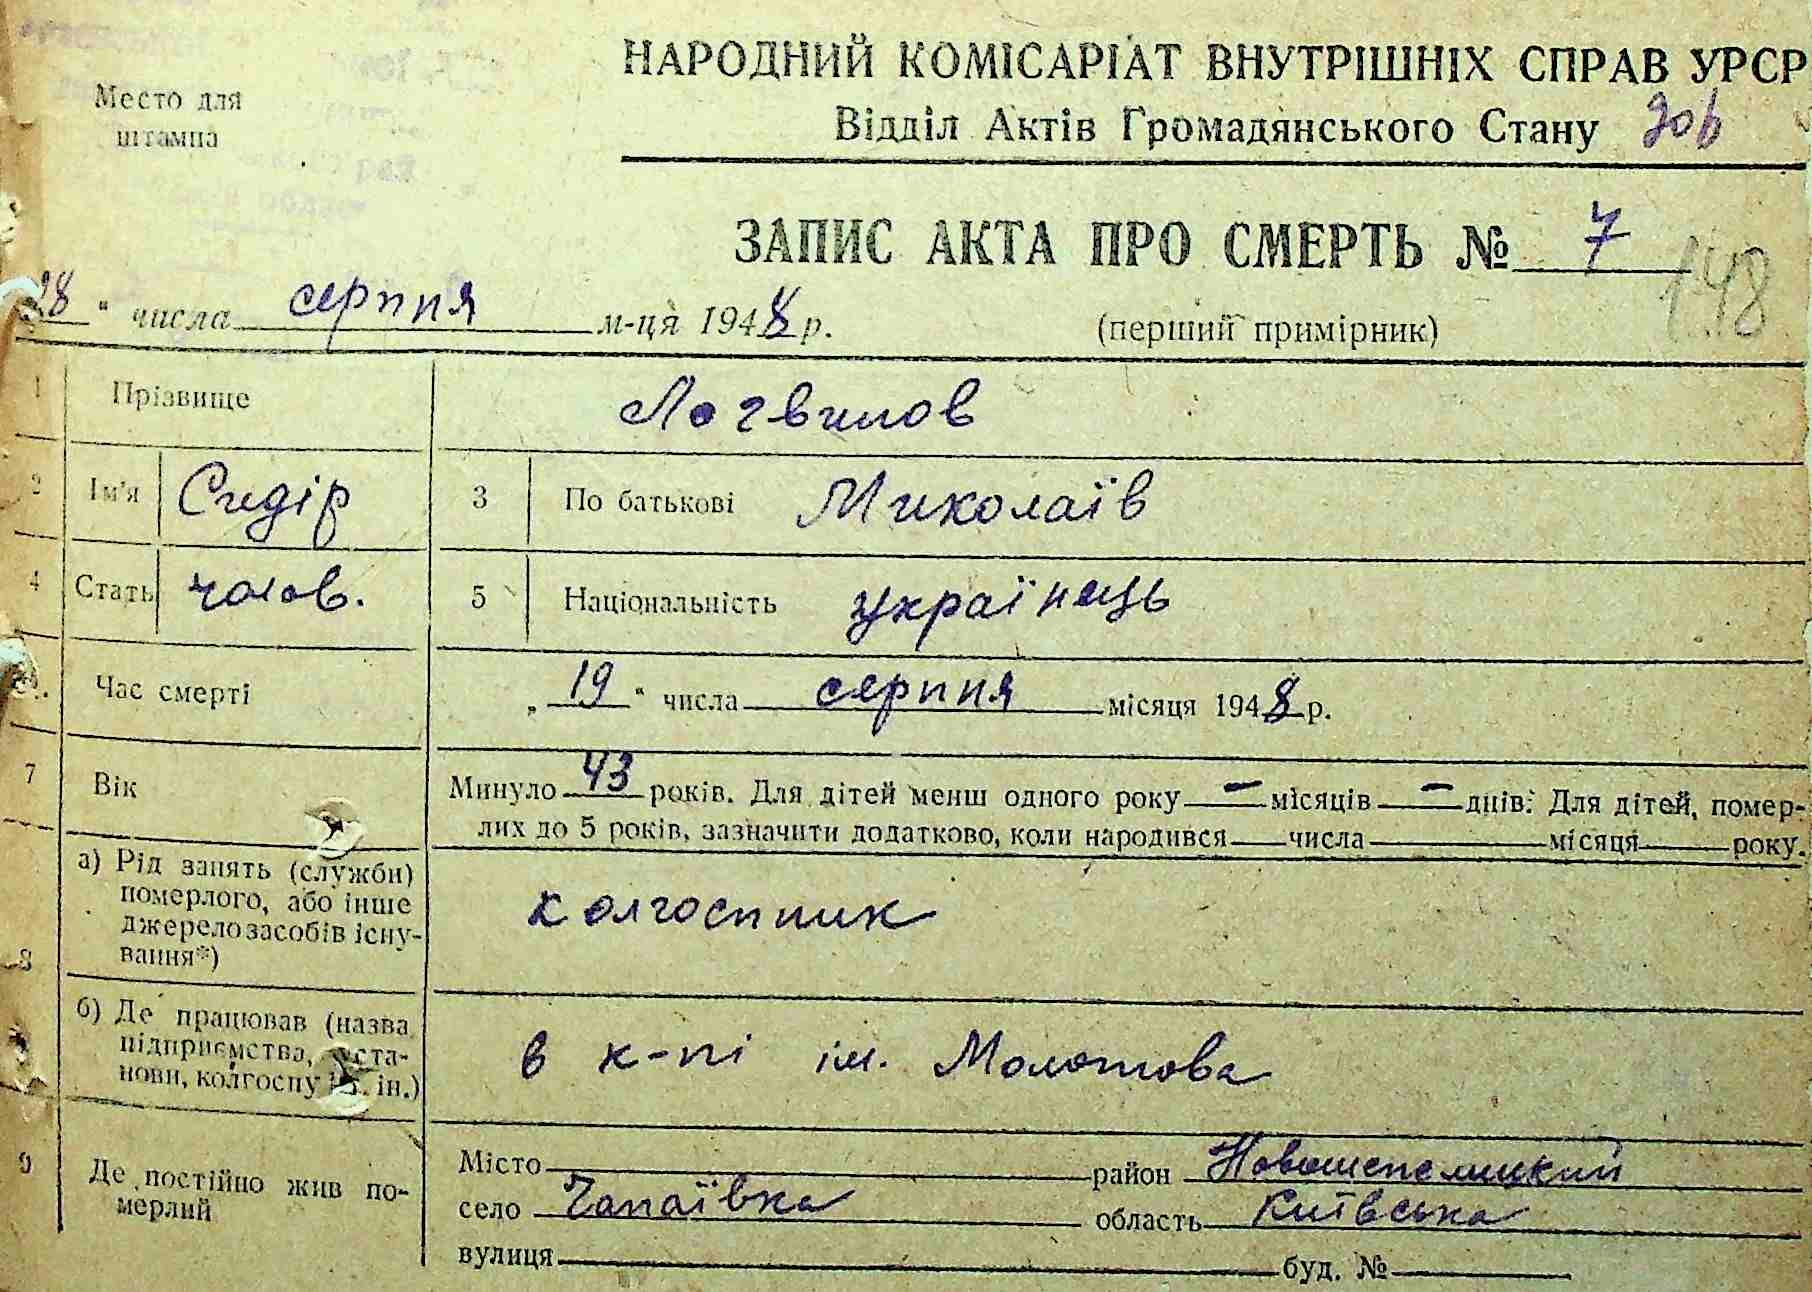 НАРОДНИЙ КОМІСАРІАТ ВНУТРІШНІХ СПРАВ УРСР
Место для штампа
Відділ Актів Громадянського Стану
ЗАПИС АКТА ПРО СМЕРТЬ № 7
148
28 " числа серпня м-ця 1948 р. (перший примірник)
1 Прізвище Логвинов
2 Ім'я Сидір 3 По батькові Миколаїв
4 Стать чолов. 5 Національність українець
Час смерті „ 19 " числа серпня місяця 1948 р.
7 Вік Минуло 43 років. Для дітей менш одного року — місяців — днів. Для дітей, помер-
лих до 5 років, зазначити додатково, коли народився числа місяця року.
8 а) Рід занять (служби) померлого, або інше джерело засобів існу-вання*) колгоспник
б) Де працював (назва підприємства, уста-нови, колгоспу і т. ін.) в к-пі ім. Молотова
9 Де постійно жив по-мерлий
Місто район Новошепелицкий
село Чапаївка область Київська
вулиця буд. №